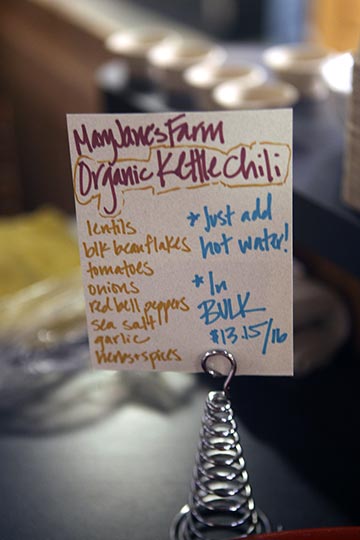 MaryJane's Farm
Organic Kettle Chili
lentils
blk bean flakes
tomatoes
onions
red bell peppers
sea salt
garlic
herbs + spices
*Just add
hot water!
*In
BULK
$13.15/lb